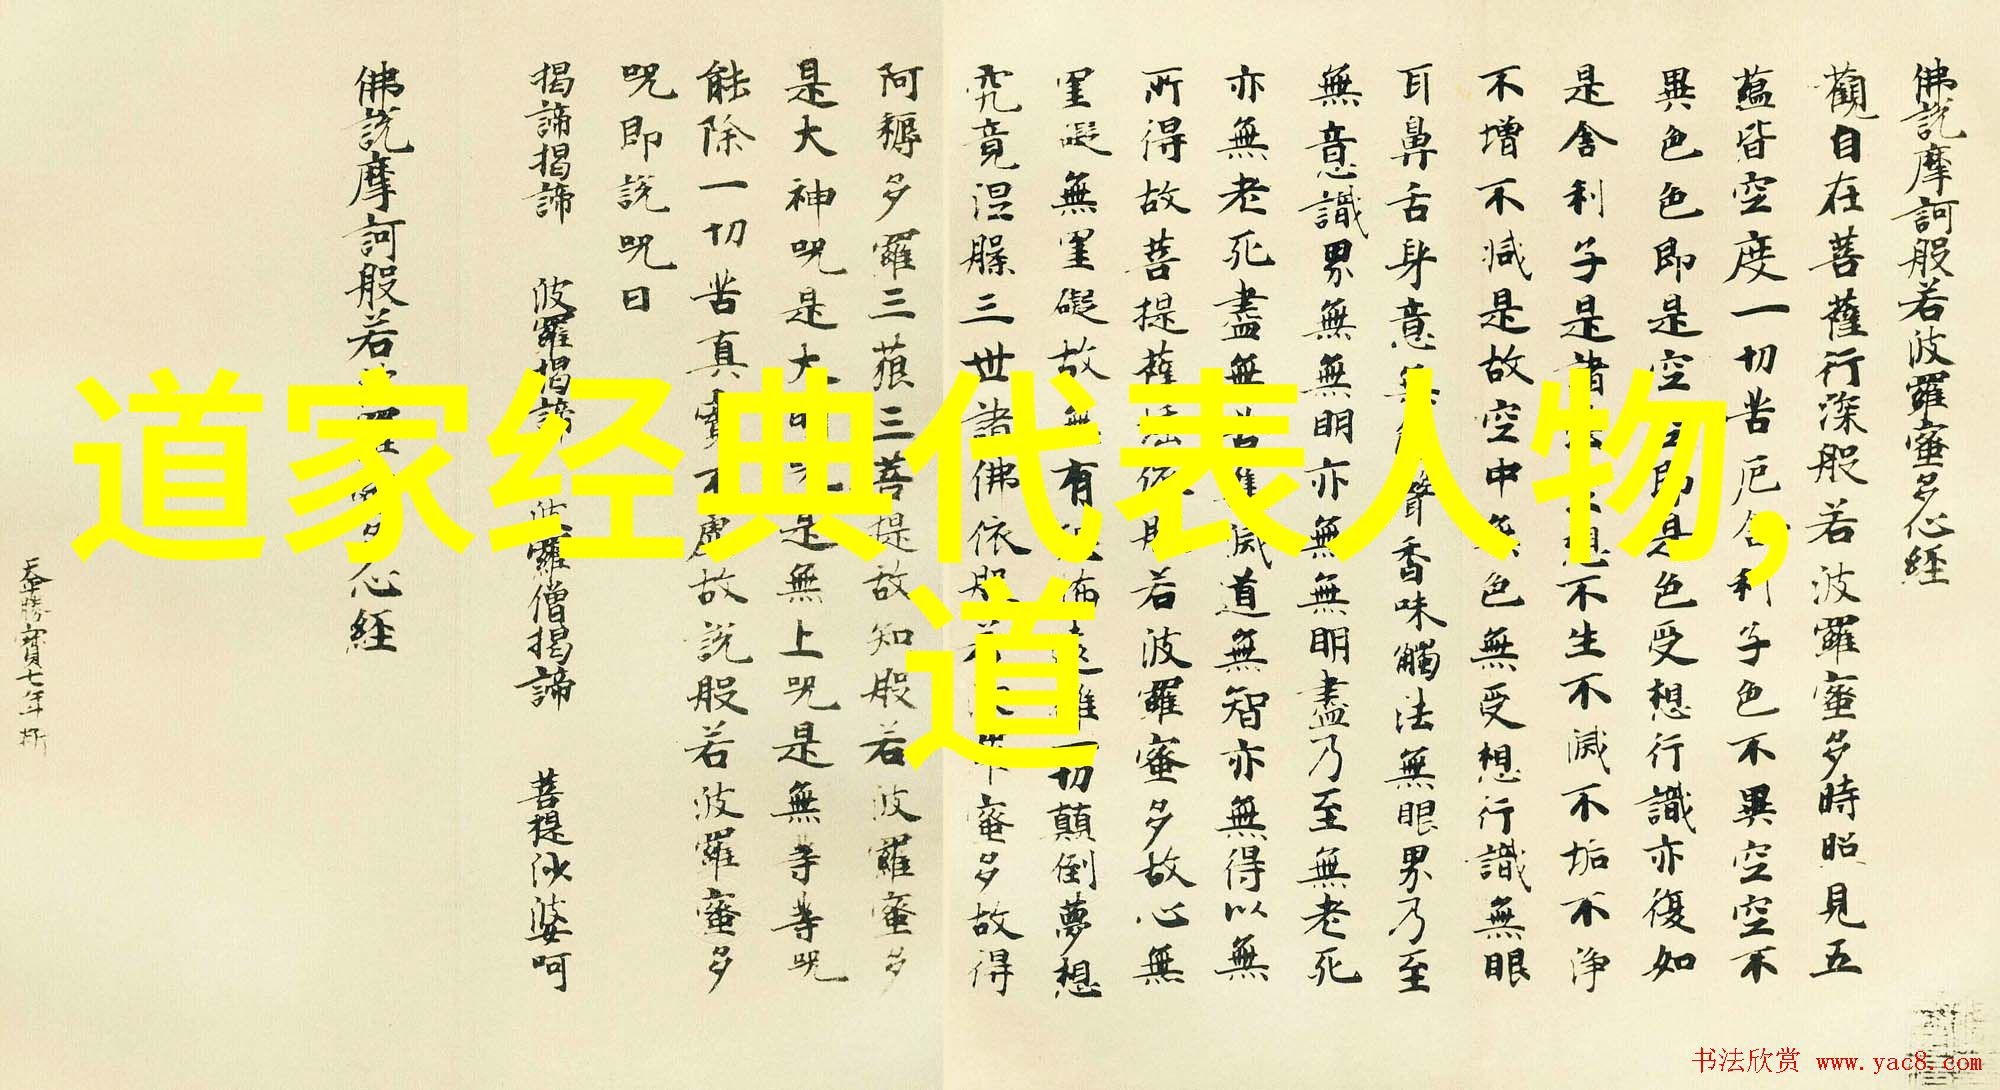 道家经典代表人物,
道
佛說摩訶般若波羅蜜多心経
觀自在菩薩行深般若波羅蜜多時照見五
蘊皆空度一切苦厄舎利子色不異空空不
異色色即是空空即是色受想行識亦復如
是舎利子是諸法空想不生不滅不垢不浄
不增不減是故空中無色無受想行識無眼
耳鼻舌身意無色聲香味觸法無眼界乃至
無意識界無無明亦無無明盡乃至無老死
亦無老死盡無苦集滅道無智亦無得以無
所得故菩提薩埵依般若波羅蜜多故心無
罣礙無罣礙故無有恐怖遠離一切顛倒夢想
究竟涅槃三世諸佛依般若波羅蜜多故得
阿耨多羅三藐三菩提故知般若波羅蜜多
是大神咒是大明咒是無上咒是無等等咒
能除一切苦真實不虛故說般若波羅蜜多
咒即說咒曰
揭諦揭諦 波羅揭諦 波羅僧揭諦 菩提沙婆呵
佛說摩訶般若波羅蜜多心経
勝寶七年
书法欣赏 www.yac8.com